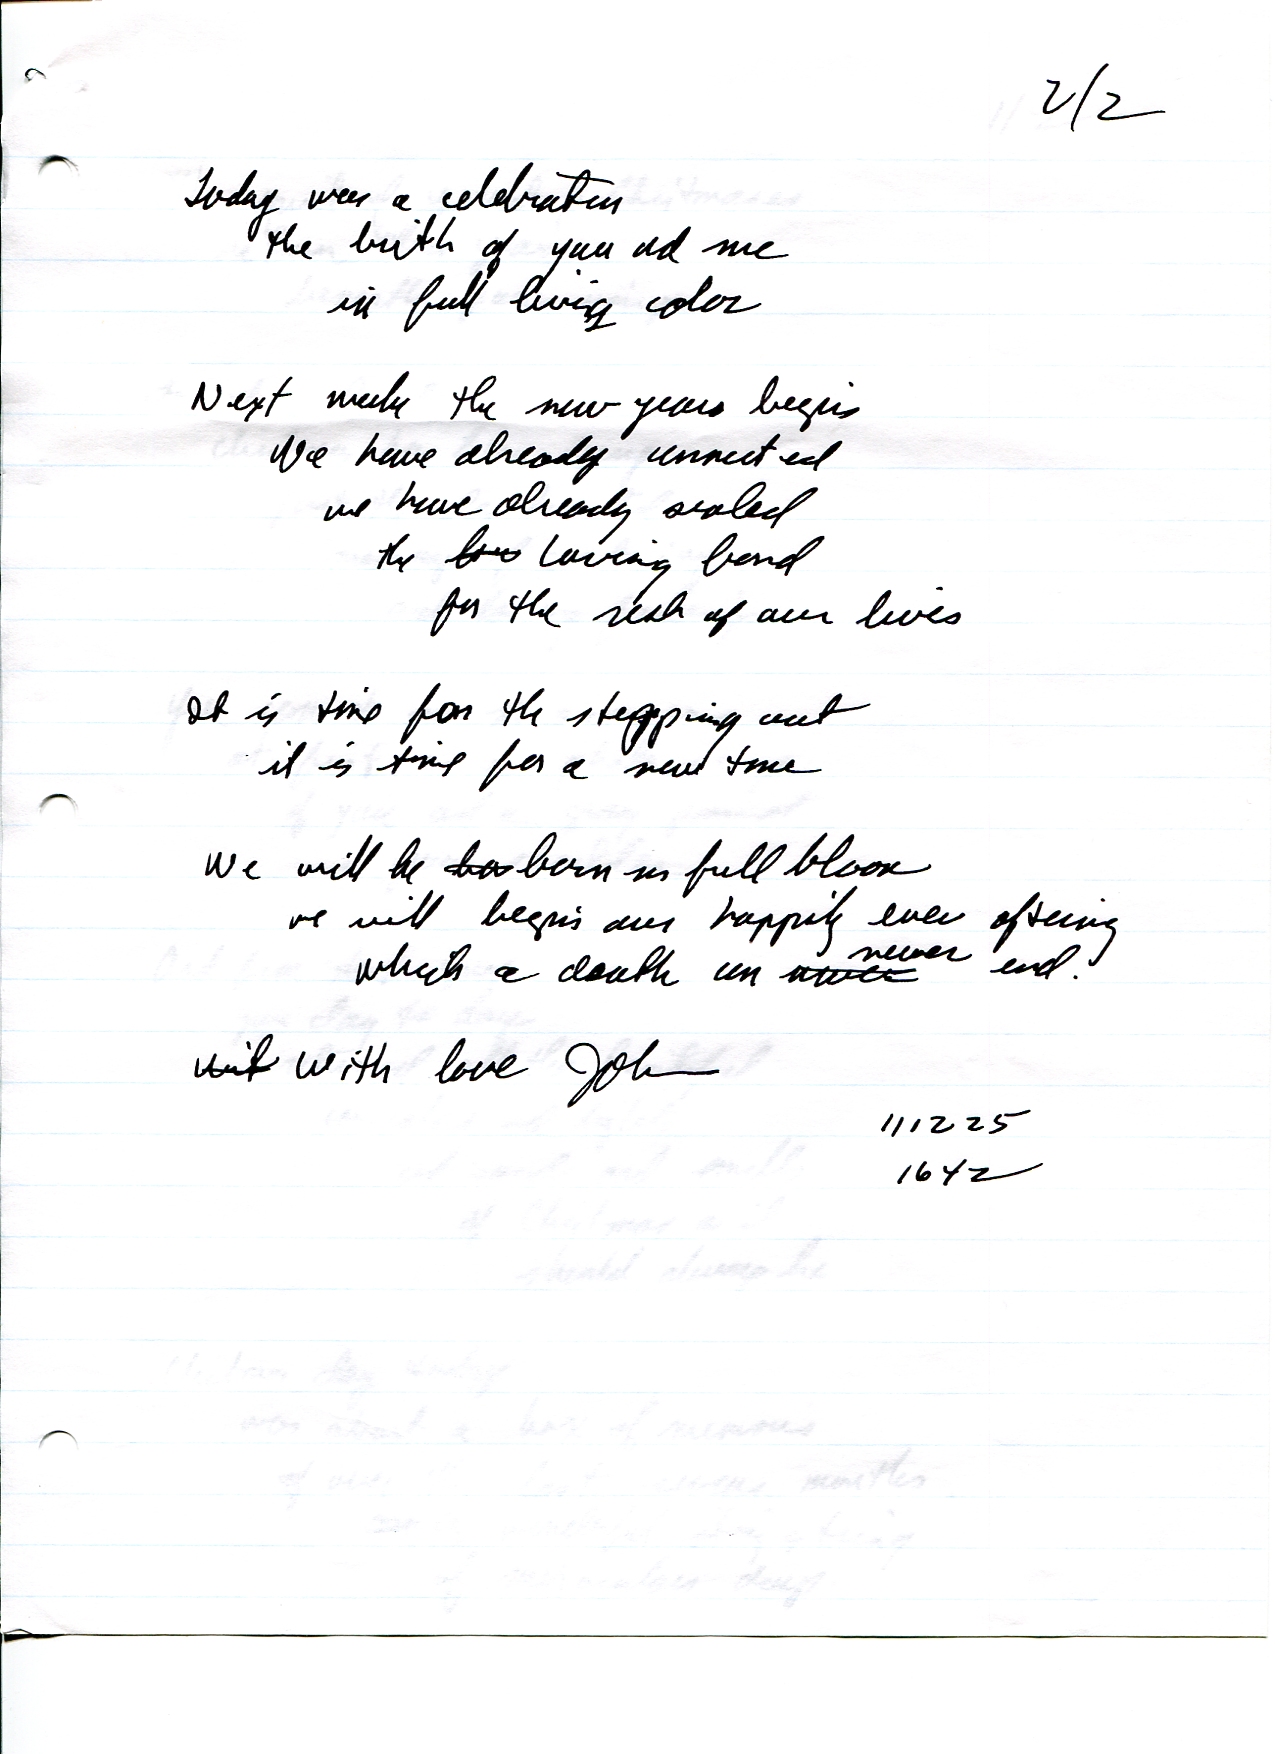 2/2
Today was a celebration
the birth of you and me
in full living color
Next week the new years begins
We have already connected
we have already sealed
the loving bond
for the rest of our lives
It is time for the stepping out
it is time for a new time
We will be born in full bloom
we will begin our happily ever aftering
which a death can never end.
With love John
111225
1642